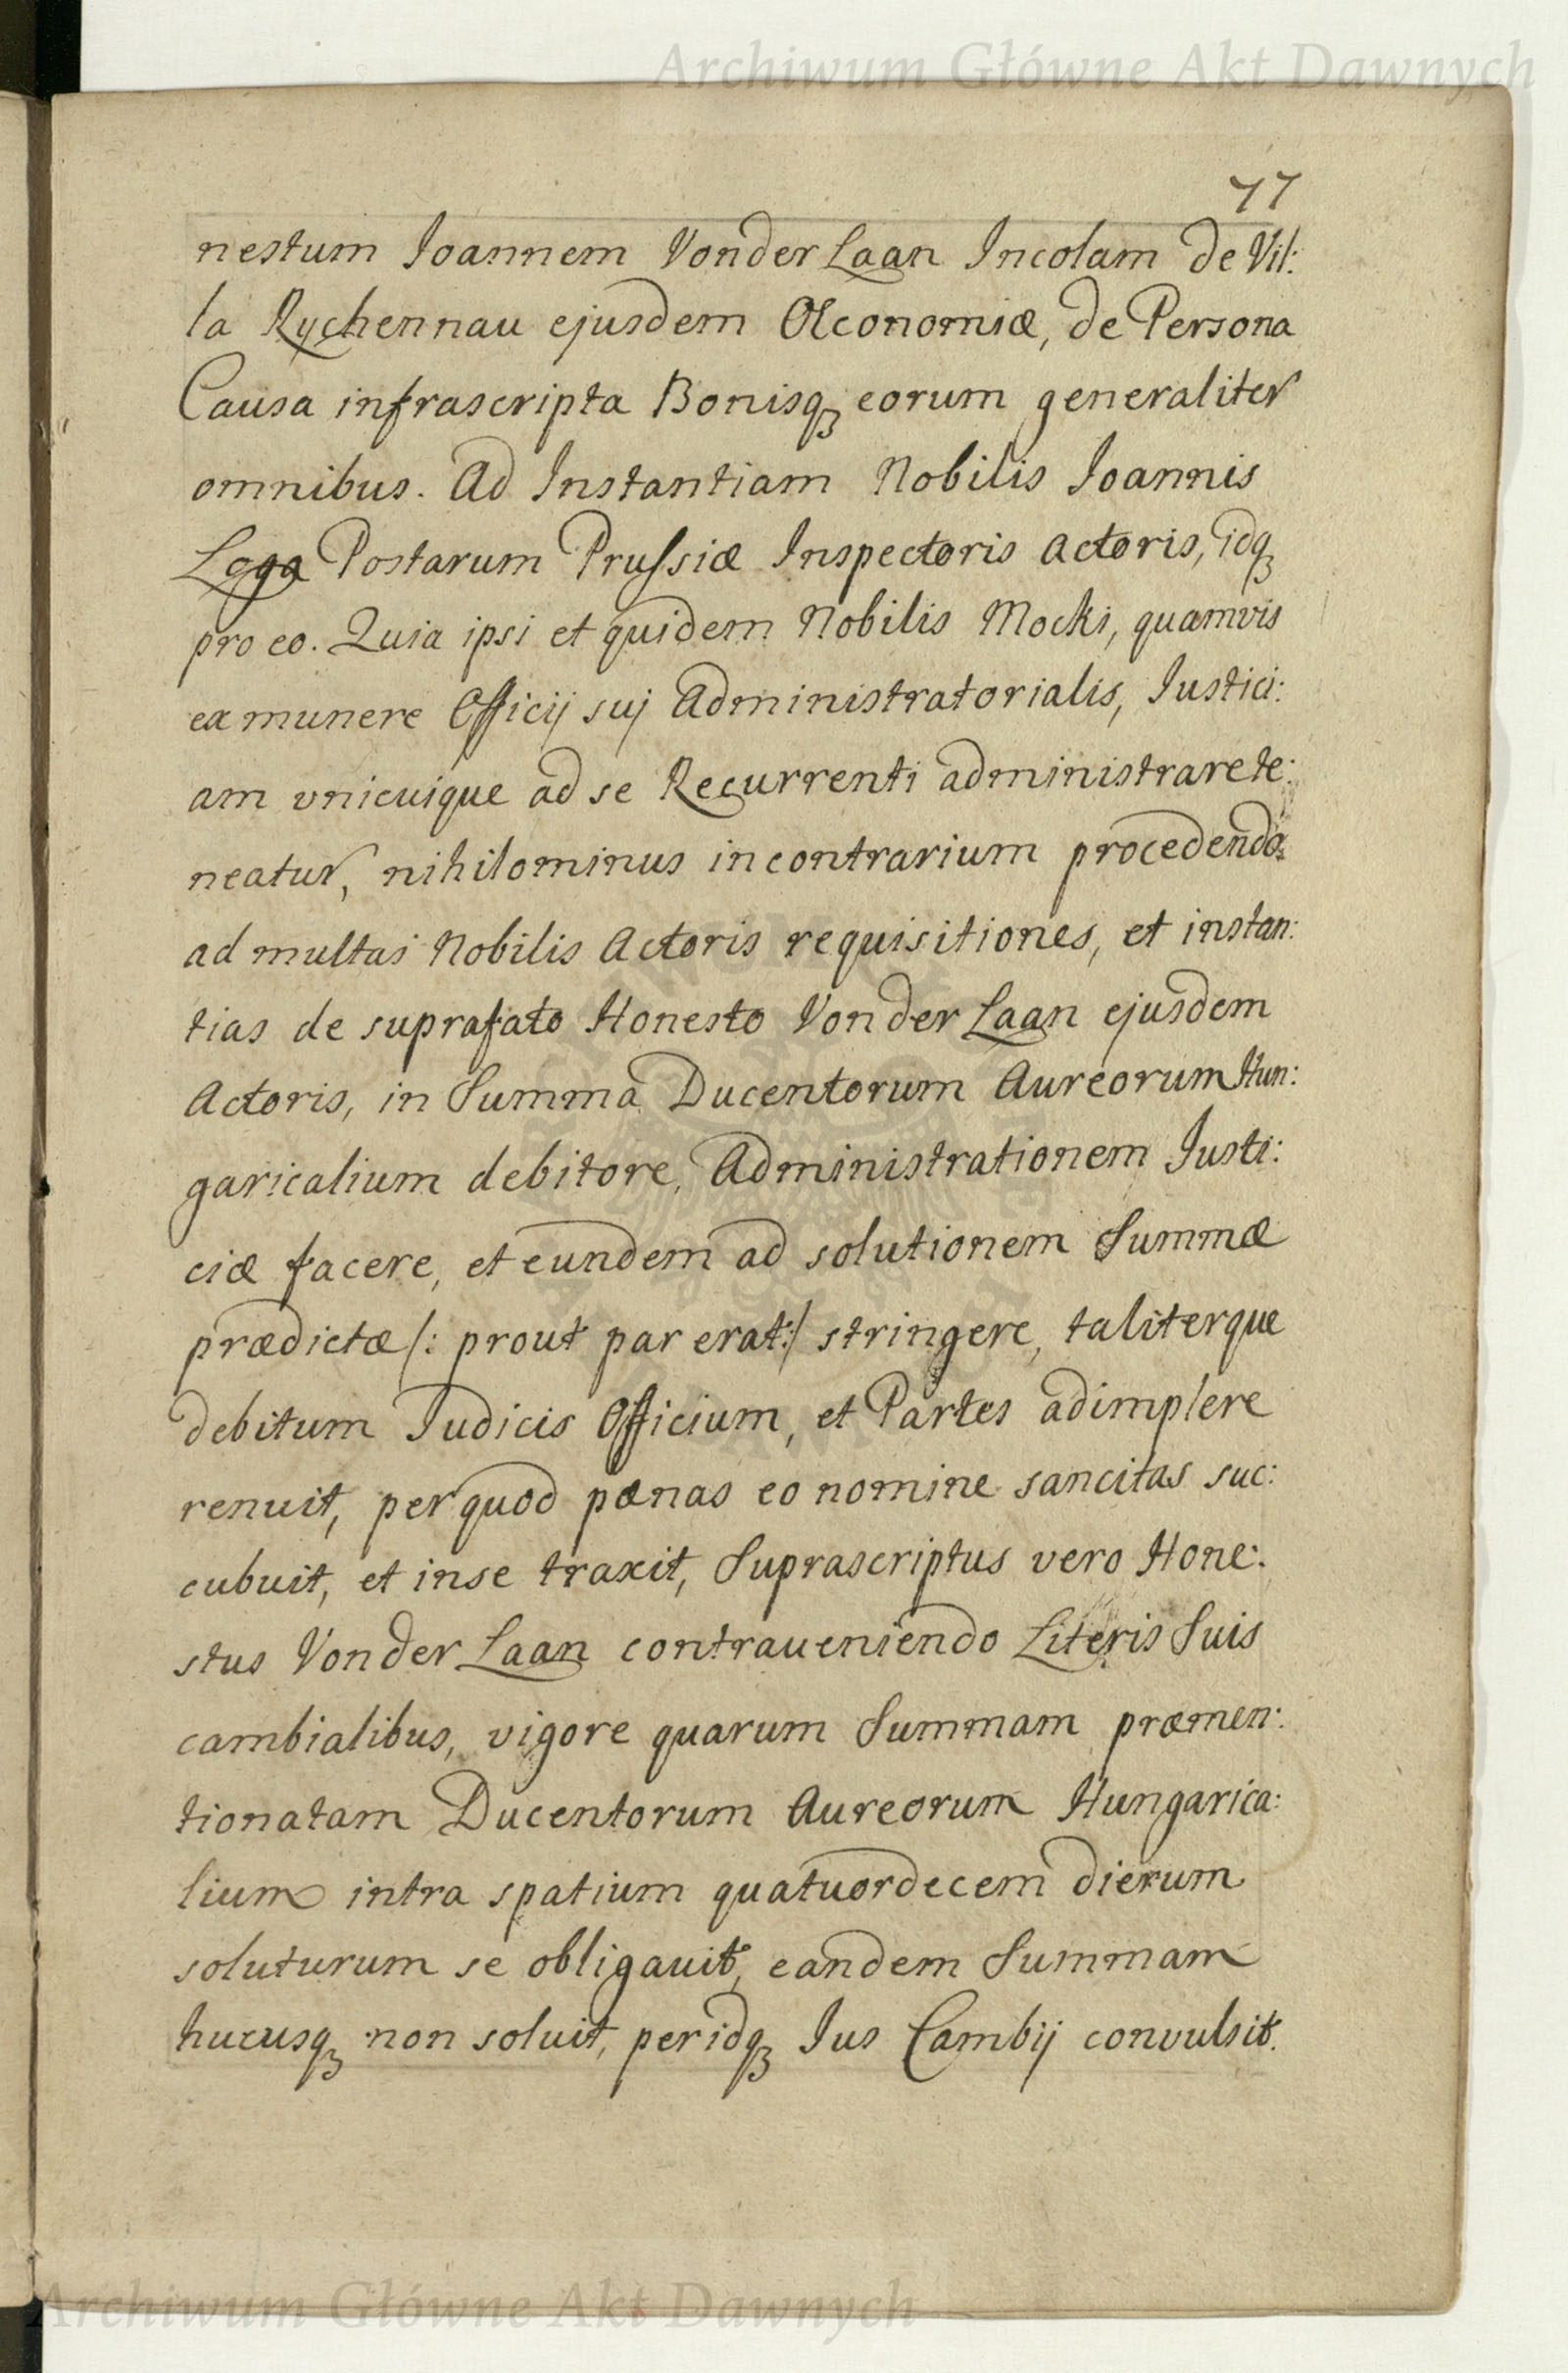 Archiwum Główne Akt Dawnych
77
nestum Joannem Vonder Laan Incolam de Vil:
la Rychennau ejusdem Œconomiæ, de Persona
Causa infrascripta Bonisq₃ eorum generaliter
omnibus. Ad Instantiam Nobilis Joannis
Loga Postarum Prussiæ Inspectoris Actoris, idq₃
pro eo. Quia ipsi et quidem Nobilis Mocki, quamvis
ex munere Officij suj Administratorialis, Justici:
am vnicuique ad se Recurrenti administrare te:
neatur, nihilominus in contrarium procedendo
ad multas Nobilis Actoris requisitiones, et instan:
tias de suprafato Honesto Vonder Laan ejusdem
Actoris, in Summa Ducentorum Aureorum Hun:
garicalium debitore, Administrationem Justi:
ciæ facere, et eundem ad solutionem Summæ
prædictæ /: prout par erat :/ stringere, taliterque
debitum Judicis Officium, et Partes adimplere
renuit, per quod pænas eo nomine sancitas suc:
cubuit, et in se traxit, Suprascriptus vero Hone:
stus Vonder Laan contraueniendo Literis Suis
cambialibus, vigore quarum Summam præmen:
tionatam Ducentorum Aureorum Hungarica:
lium intra spatium quatuordecem dierum
soluturum se obligauit, eandem Summam
hucusq₃ non soluit, per idq₃ Jus Cambij convulsit.
Archiwum Główne Akt Dawnych